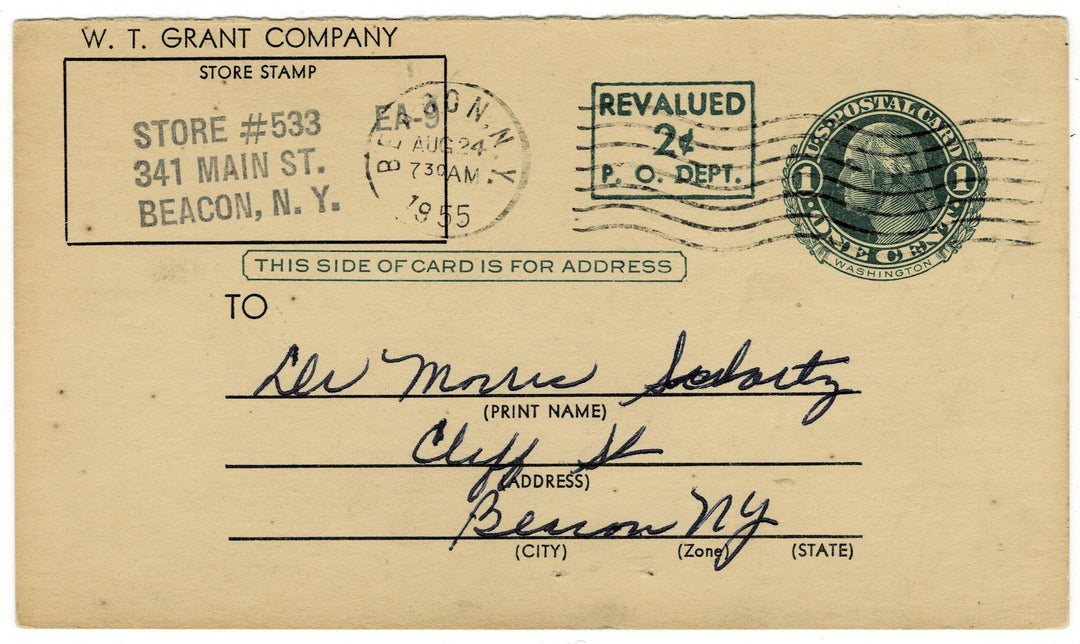 W. T. GRANT COMPANY
STORE STAMP
STORE #533 EA-9
341 MAIN ST.
BEACON, N. Y.
BEACON, N.Y.
AUG 24
7 30 AM
1955
REVALUED
2¢
P. O. DEPT.
U.S. POSTAL CARD
1 1
ONE CENT
WASHINGTON
THIS SIDE OF CARD IS FOR ADDRESS
TO
Morris Schartz
(PRINT NAME)
Cliff St
(ADDRESS)
Beacon NY
(CITY) (Zone) (STATE)